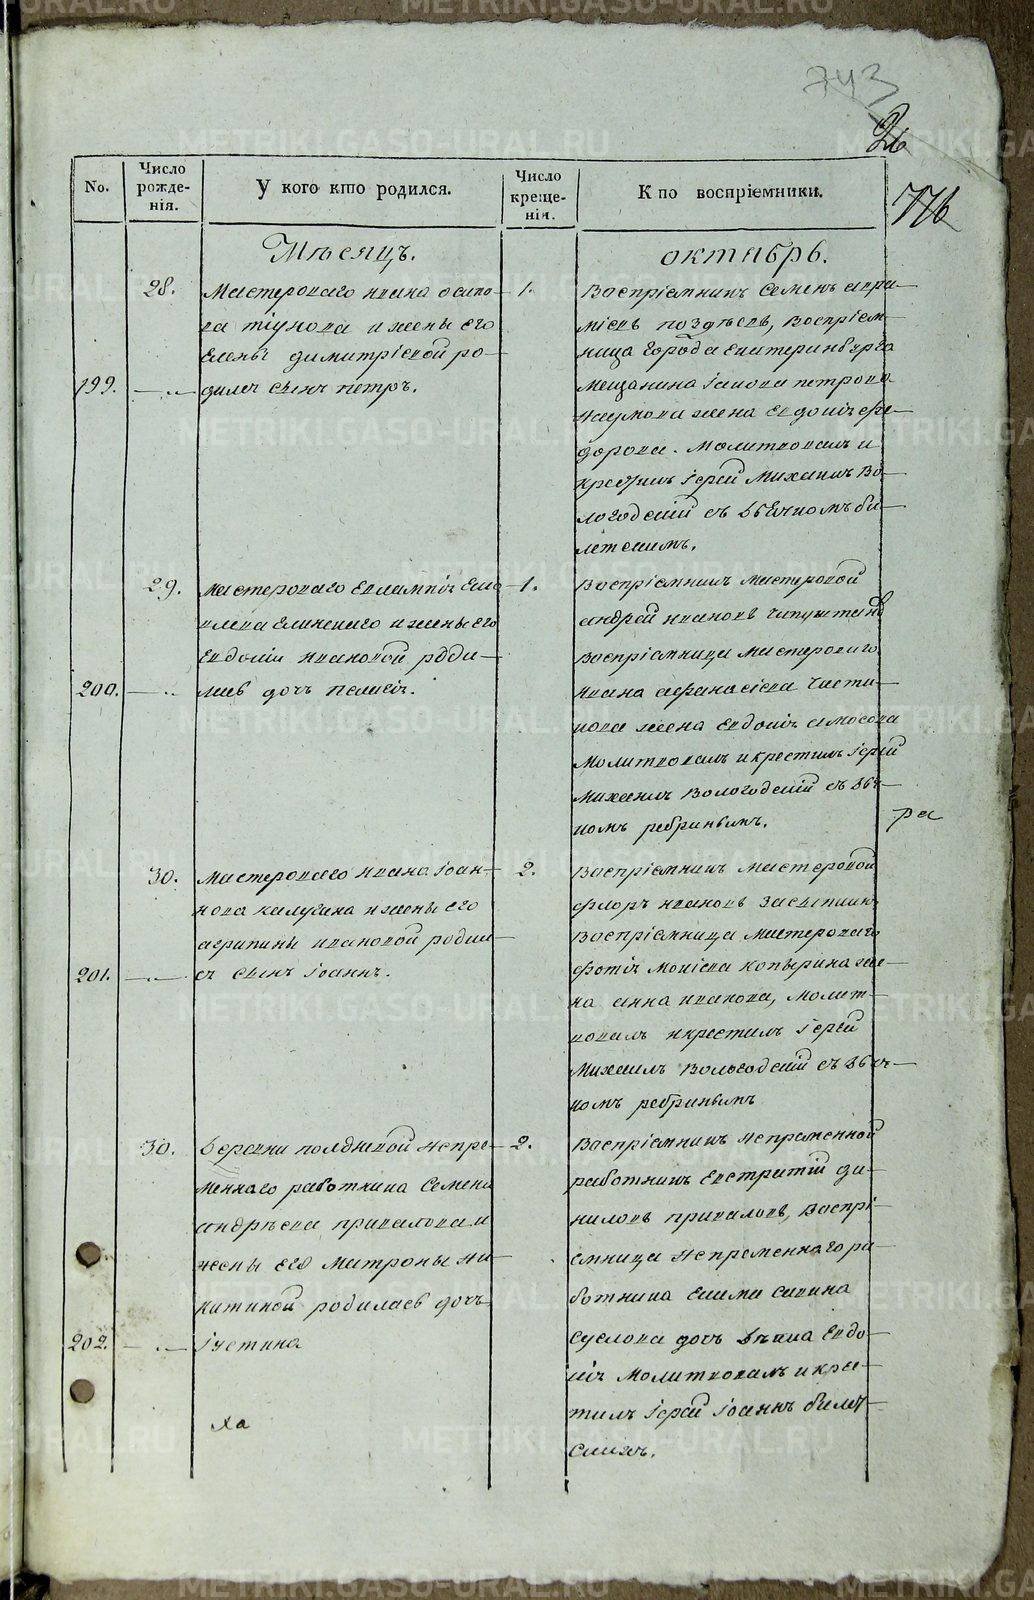 743
26
776
No.
Число рожде-нія.
У кого кто родился.
Число креще-нія.
Кто воспріемники.
Мѣсяцъ.
октябрь.
28.
Мастероваго ивана осипо-
ва тіунова и жены его
Елены димитріевой ро-
199.
дился сынъ петръ.
1.
Воспріемникъ Семенъ
воспріем-
ница города екатеринбурга
мещанина іакова петрова
наумова жена евдокія фе-
дорова. молитвовалъ и
крестилъ іерей Михаилъ Во-
логодскій съ дьячкомъ би-
летскимъ.
29.
мастероваго
и жены его
Евдокіи ивановой роди-
200.
лась дочь пелагія.
1.
Воспріемникъ мастеровой
андрей ивановъ
воспріемница мастероваго
ивана афанасіева чисти-
кова жена евдокія
молитвовалъ и крестилъ іерей
Михаилъ Вологодскій съ дья-
комъ ребринымъ.
ра
30.
Мастероваго ивана іоан-
нова калугина и жены его
агрипины ивановой родил-
201.
ся сынъ іоаннъ.
2.
Воспріемникъ мастеровой
флоръ ивановъ засыпкинъ
Воспріемница мастероваго
фотія моисіева копырина же-
на анна иванова, молит-
вовалъ и крестилъ іерей
Михаилъ Вологодскій съ дьяч-
комъ ребринымъ
30.
деревни полдневой непре-
меннаго работника Семена
андрѣева привалова и
жены его матроны ни-
китиной родилась дочь
202.
іустина
2.
Воспріемникъ непременной
работникъ евстратій да-
ниловъ приваловъ, воспрі-
емница непременнаго ра-
ботника савина
суслова дочь дѣвица Евдо-
кія молитвовалъ и крес-
тилъ іерей іоаннъ билет-
скихъ.
ха